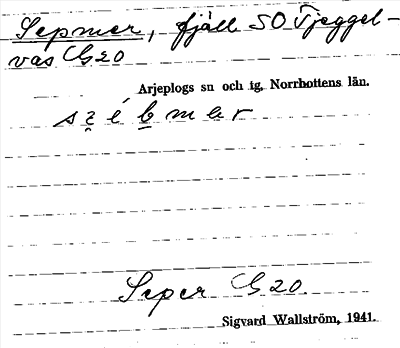 Sepmer, fjäll SO Tjeggel-
vas G20
Arjeplogs sn och tg, Norrbottens län.
Seper G 20.
Sigvard Wallström, 1941.